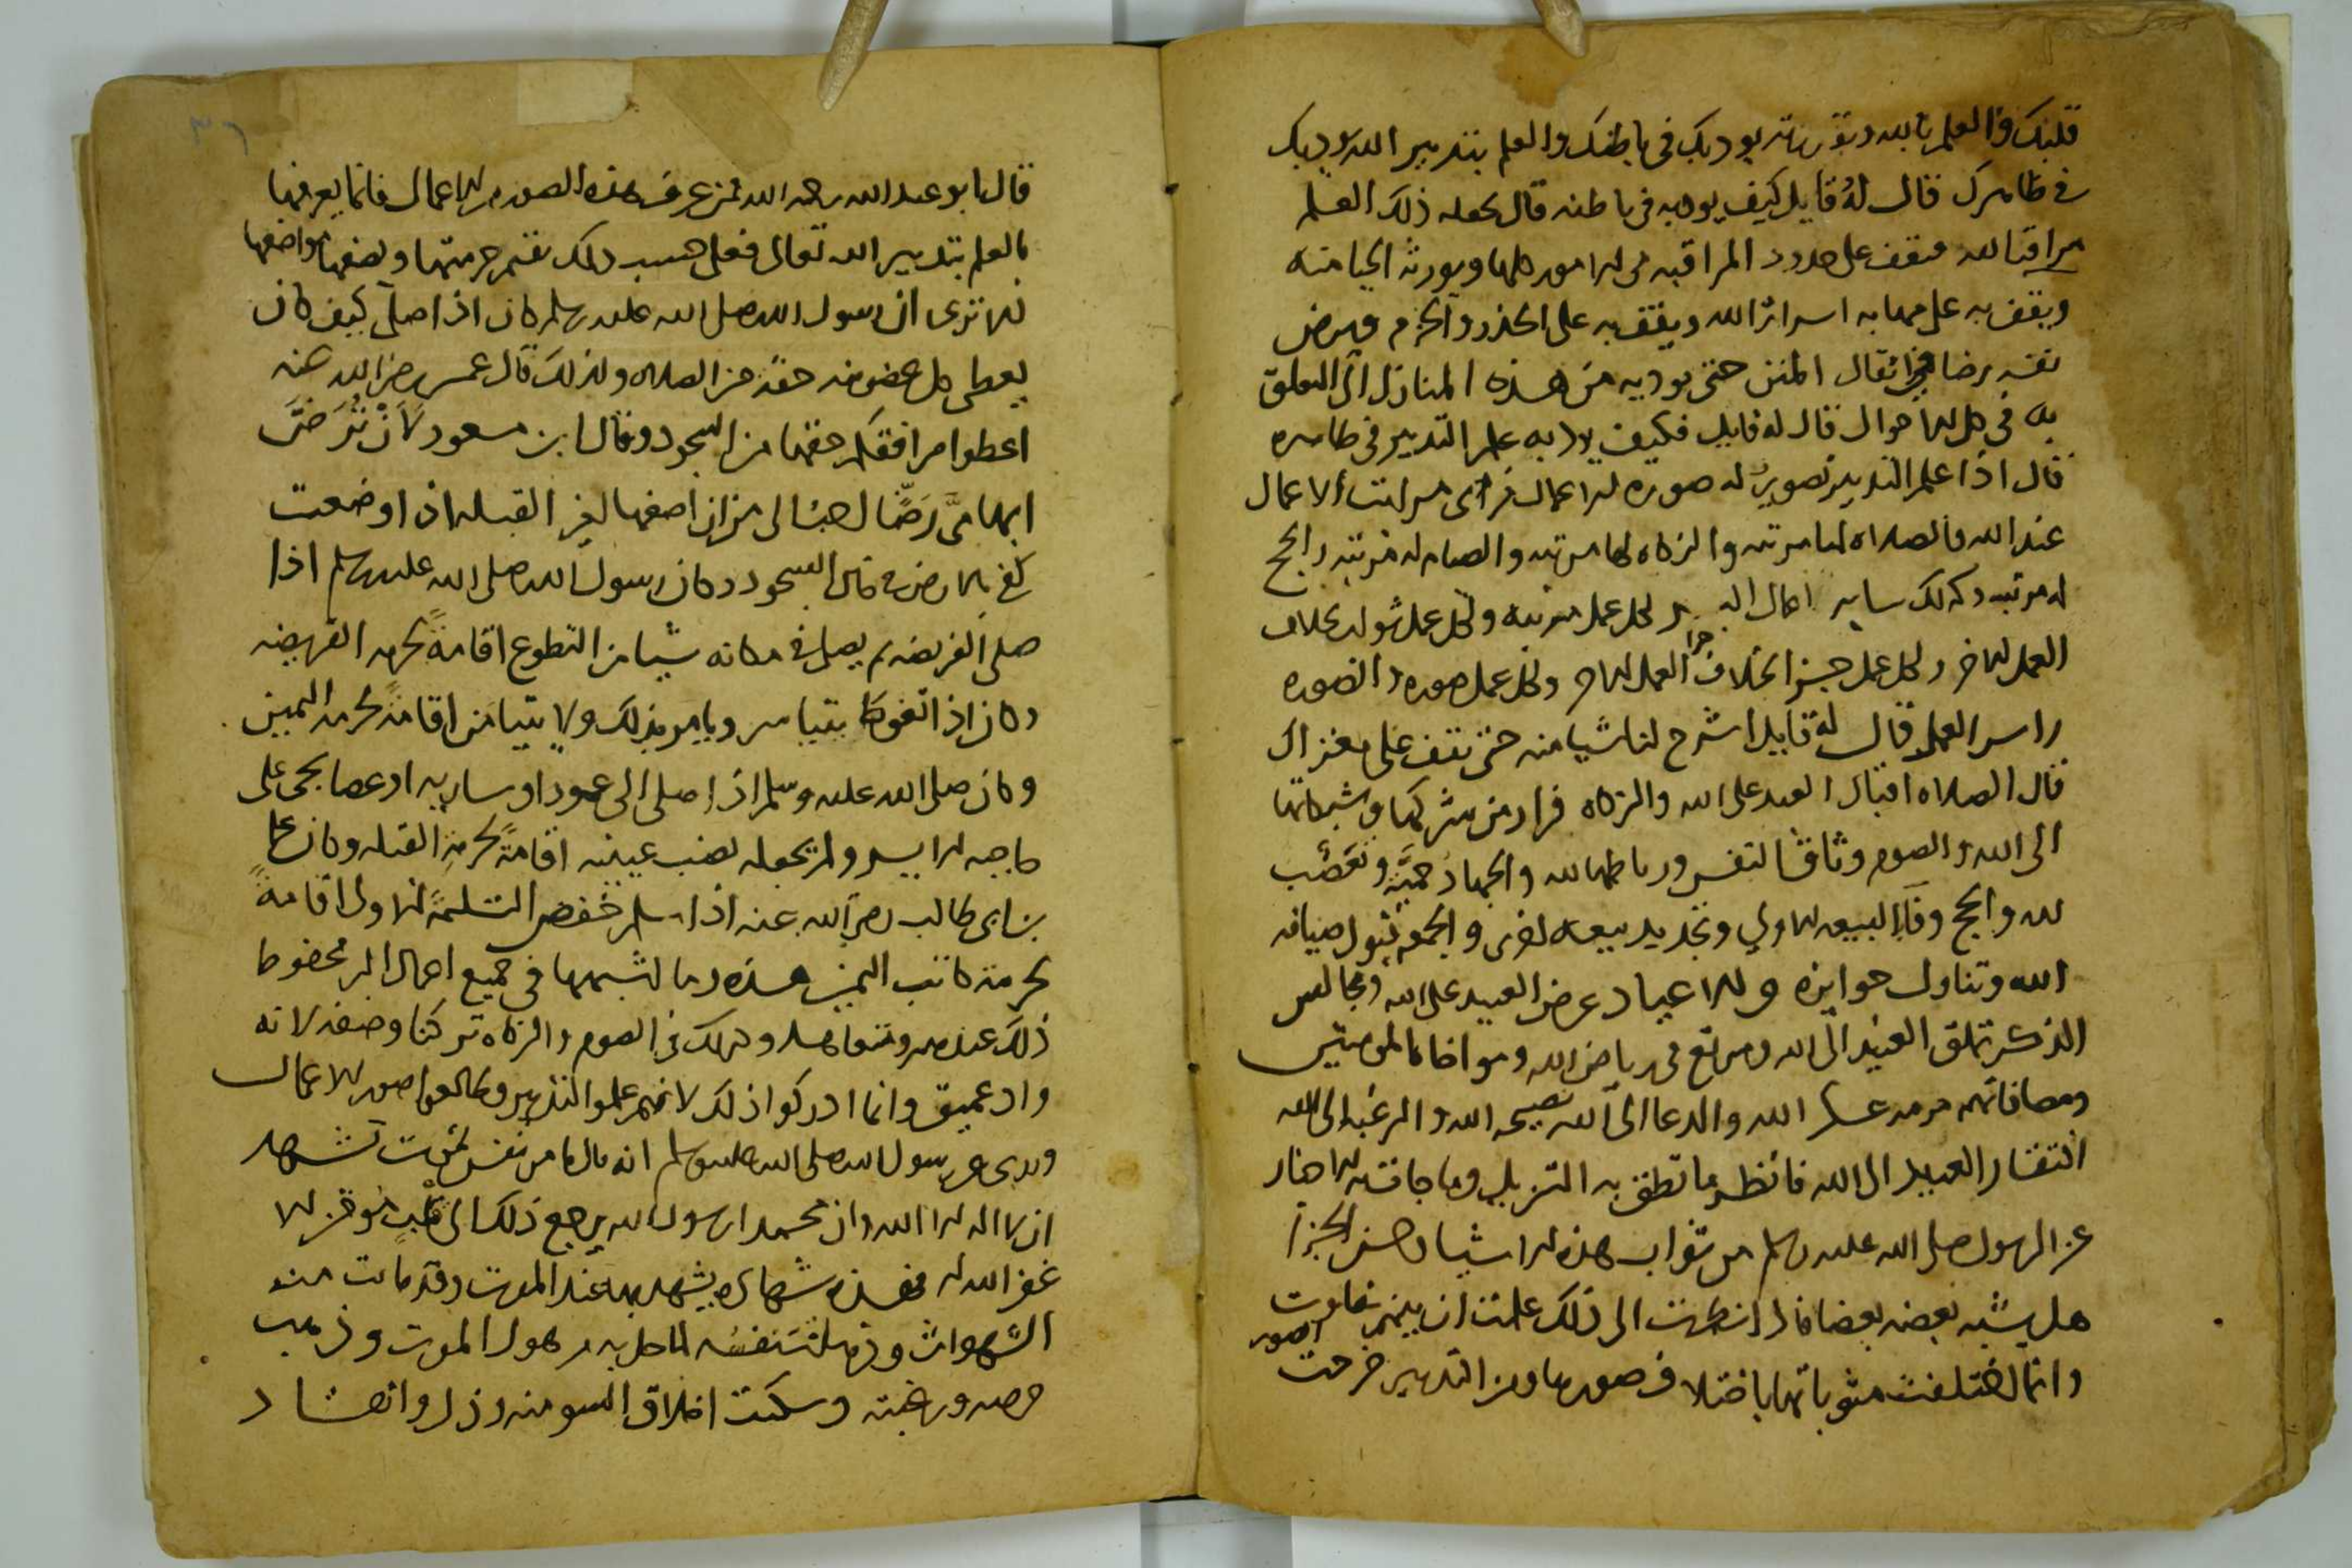 قلبك والعلم بالله وبقربه يوديك في باطنك والعلم بتدبير الله يوديك
في ظاهرك قال له قايل كيف يوديه في باطنه قال يحمله ذلك العلم
مراقبا لله فيقف على حدود المراقبه في الامور كلها ويورثه الحيا منه
ويقف به على مهابه اسرار الله ويقف به على الحذر والحزم ويرض
نفسه رضا في اثقال المنن حتى يوديه من هذه المنازل الى التعلق
به في كل الاحوال قال له قايل فكيف يوديه علم التدبير في ظاهره
قال اذا علم التدبير تصور له صوره الاعمال فراى مراتب الاعمال
عند الله فالصلاه لها مرتبه والزكاه لها مرتبه والصيام له مرتبه والحج
له مرتبه وكذلك ساير اعمال البر لكل عمل مرتبه ولكل عمل ثواب خلاف
العمل الاخر ولكل عمل جزا خلاف جزا العمل الاخر ولكل عمل صوره والصوره
راس العمل قال له قايل اشرح لنا شيا منه حتى نقف على مغزاك
قال الصلاه اقبال العبد على الله والزكاه فرار من شركها وشبكاتها
الى الله والصوم وثاق النفس ورباطها لله والجهاد حمية وتعصب
لله والحج وفا البيعه الاولى وتجديد بيعه اخرى والجمعه قبول ضيافه
الله وتناول جوايزه والاعياد عرض العبيد على الله ومجالس
الذكر تملق العبيد الى الله ومرتع في رياض الله ومواخاه المومنين
ومصافاتهم حرمه عسكر الله والدعا الى الله نصيحه الله والرغبه الى الله
افتقار العبيد الى الله فانظر ما نطق به التنزيل وما جات به الاخبار
عن الرسول صلى الله عليه وسلم من ثواب هذه الاشيا وحسن الجزا
هل يشبه بعضه بعضا فاذا نظرت الى ذلك علمت ان بينهم تفاوت
وانما اختلفت مثوباتها باختلاف صورها ومن التدبير خرجت الصور
٣٦
قال ابو عبد الله رحمه الله فمن عرف هذه الصور من الاعمال فانما يعرفها
بالعلم بتدبير الله تعالى فعلى حسب ذلك يقيم حرمتها ويضعها مواضعها
الا ترى ان رسول الله صلى الله عليه وسلم كان اذا صلى كيف كان
يعطي كل عضو منه حقه من الصلاه ولذلك قال عمر رضي الله عنه
اعطوا مرافقكم حقها من السجود وقال ابن مسعود لأن ترضّ
ابهامي رضّا احب الى من ان اضعها لغير القبله اذا وضعت
كفي بالارض في حال السجود وكان رسول الله صلى الله عليه وسلم اذا
صلى الفريضه لم يصل في مكانه شيا من التطوع اقامةً لحرمه الفريضه
وكان اذا تغوط يتياسر ويامر بذلك ولا يتيامن اقامةً لحرمه اليمين
وكان صلى الله عليه وسلم اذا صلى الى عمود او ساريه او عصا يجعله على
حاجبه الايسر ولم يجعله نصب عينيه اقامةً لحرمة القبله وكان علي
بن ابي طالب رضي الله عنه اذا سلم خفض التسلمة الاولى اقامةً
لحرمة كاتب اليمين هذه وما اشبهها في جميع اعمال البر محفوظ
ذلك عندهم ومتعاهد وكذلك في الصوم والزكاه تركنا وصفه لانه
واد عميق وانما ادركوا ذلك لانهم علموا التدبير وطالعوا صور الاعمال
وروى عن رسول الله صلى الله عليه وسلم انه قال ما من نفس تموت تشهد
ان لا اله الا الله وان محمدا رسول الله يرجع ذلك الى قلب موقن الا
غفر الله له فهذه شهاده يشهد بها عند الموت وقد ماتت منه
الشهوات وذهلت نفسه لما حل به من هول الموت وذهب
حرصه ورغبته وسكنت اخلاق السو منه وذل وانقاد